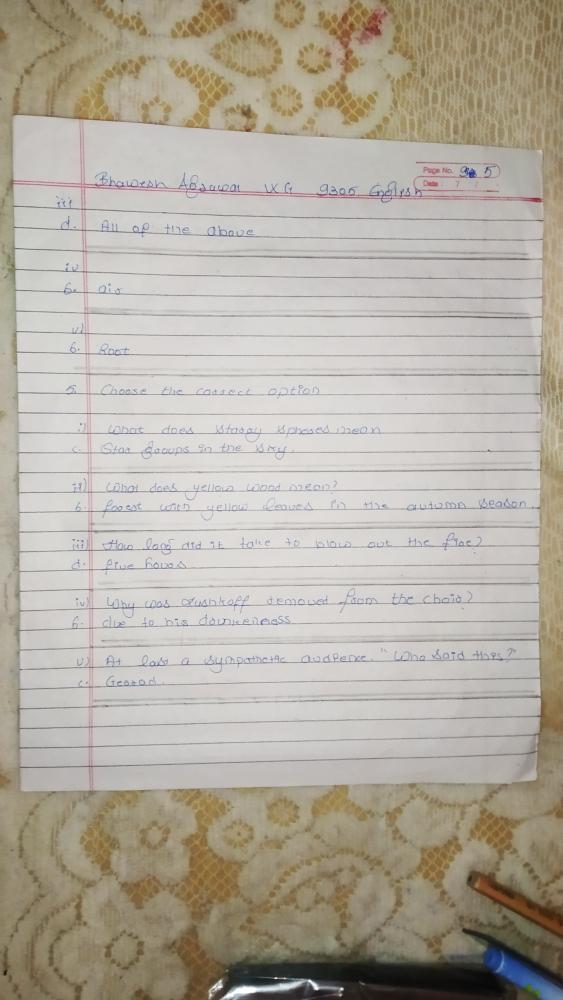 Page No. 5
Date: / /
Bhawesh Agrawal 9305 English
iii
d. All of the above
iv
b. air
v)
b. Root
5. Choose the correct option
i) What does starry spheres mean
c. Star groups in the sky.
ii) What does yellow wood mean?
b. forest with yellow leaves in the autumn season.
iii) How long did it take to blow out the fire?
d. five hours
iv) Why was removed from the choir?
b. due to his drunkeness
v) At last a sympathetic audience. "Who said this?"
c. Gerrard.